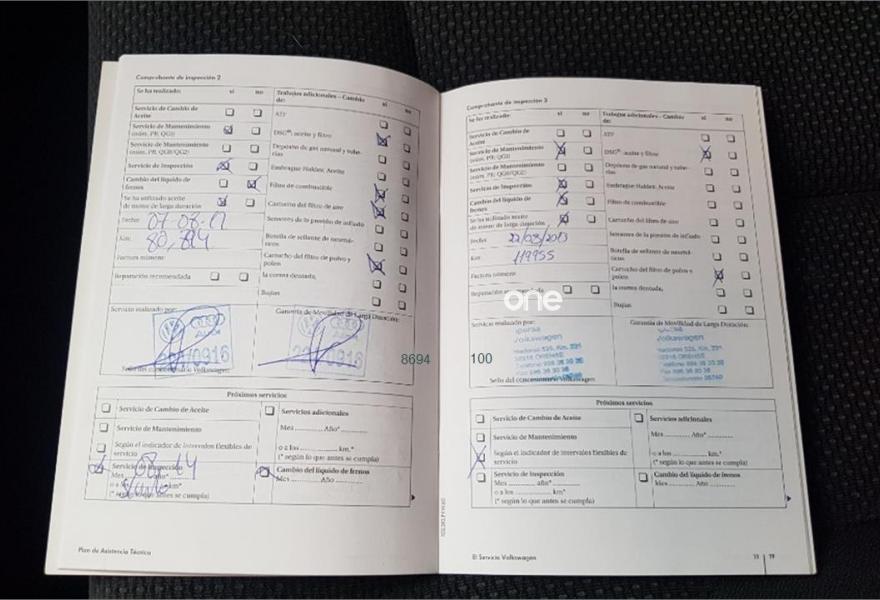 Comprobante de inspección 2
Se ha realizado: sí no
Trabajos adicionales - Cambio de: sí no
Servicio de Cambio de Aceite
ATF
Servicio de Mantenimiento (núm. PR: QG1)
DSG®: aceite y filtro
Servicio de Mantenimiento (núm. PR: QG0/QG2)
Depósito de gas natural y tuberías
Servicio de Inspección
Embrague Haldex: Aceite
Cambio del líquido de frenos
Filtro de combustible
Se ha utilizado aceite de motor de larga duración
Cartucho del filtro de aire
Fecha:
Sensores de la presión de inflado
Km: 80,894
Botella de sellante de neumáticos
Factura número:
Cartucho del filtro de polvo y polen
Reparación recomendada
la correa dentada,
Bujías
Servicio realizado por:
Garantía de Movilidad de Larga Duración:
Audi
Sello del concesionario Volkswagen
8694
Próximos servicios
Servicio de Cambio de Aceite
Servicios adicionales
Servicio de Mantenimiento
Mes .......... Año* ..........
Según el indicador de intervalos flexibles de servicio
o a los .......... km.*
(* según lo que antes se cumpla)
Servicio de Inspección
Mes 08 año* 14
o a los .......... km*
(* según lo que antes se cumpla)
Cambio del líquido de frenos
Mes .......... Año ..........
Plan de Asistencia Técnica
Comprobante de inspección 3
Se ha realizado: sí no
Trabajos adicionales - Cambio de: sí no
Servicio de Cambio de Aceite
ATF
Servicio de Mantenimiento (núm. PR: QG1)
DSG®: aceite y filtro
Servicio de Mantenimiento (núm. PR: QG0/QG2)
Depósito de gas natural y tuberías
Servicio de Inspección
Embrague Haldex: Aceite
Cambio del líquido de frenos
Filtro de combustible
Se ha utilizado aceite de motor de larga duración
Cartucho del filtro de aire
Fecha: 22/03/2013
Sensores de la presión de inflado
Km: 119955
Botella de sellante de neumáticos
Factura número:
Cartucho del filtro de polvo y polen
Reparación
la correa dentada,
one
Bujías
Servicio realizado por:
Garantía de Movilidad de Larga Duración:
Volkswagen
Sello del concesionario Volkswagen
100
Próximos servicios
Servicio de Cambio de Aceite
Servicios adicionales
Servicio de Mantenimiento
Mes .......... Año* ..........
Según el indicador de intervalos flexibles de servicio
o a los .......... km.*
(* según lo que antes se cumpla)
Servicio de Inspección
Mes .......... año* ..........
o a los .......... km*
(* según lo que antes se cumpla)
Cambio del líquido de frenos
Mes .......... Año ..........
El Servicio Volkswagen
19